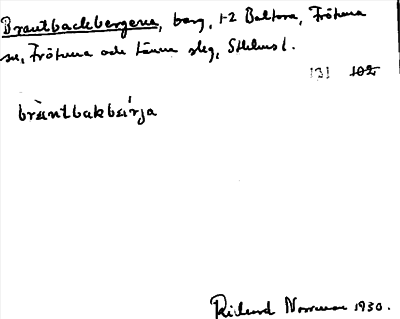 Brantbackbergena, berg, 1-2 Baltora, Frötuna
sn, Frötuna och Länna slg, Sthlms l.
131 102
bràntbakbǽrja
Rickard Norrman 1930.